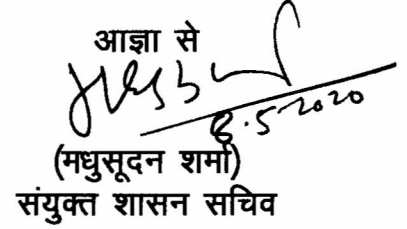 आज्ञा से
8.5.2020
(मधुसूदन शर्मा)
संयुक्त शासन सचिव